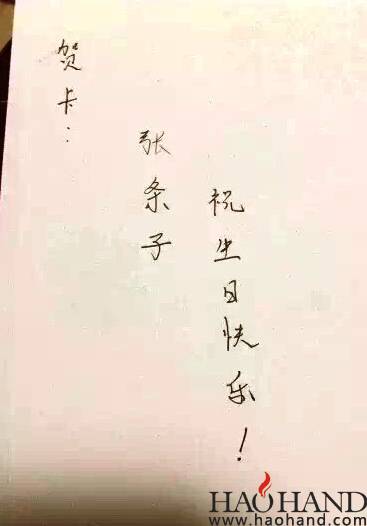 贺卡：
张条子
祝生日快乐！
HAOHAND
www.haohand.com